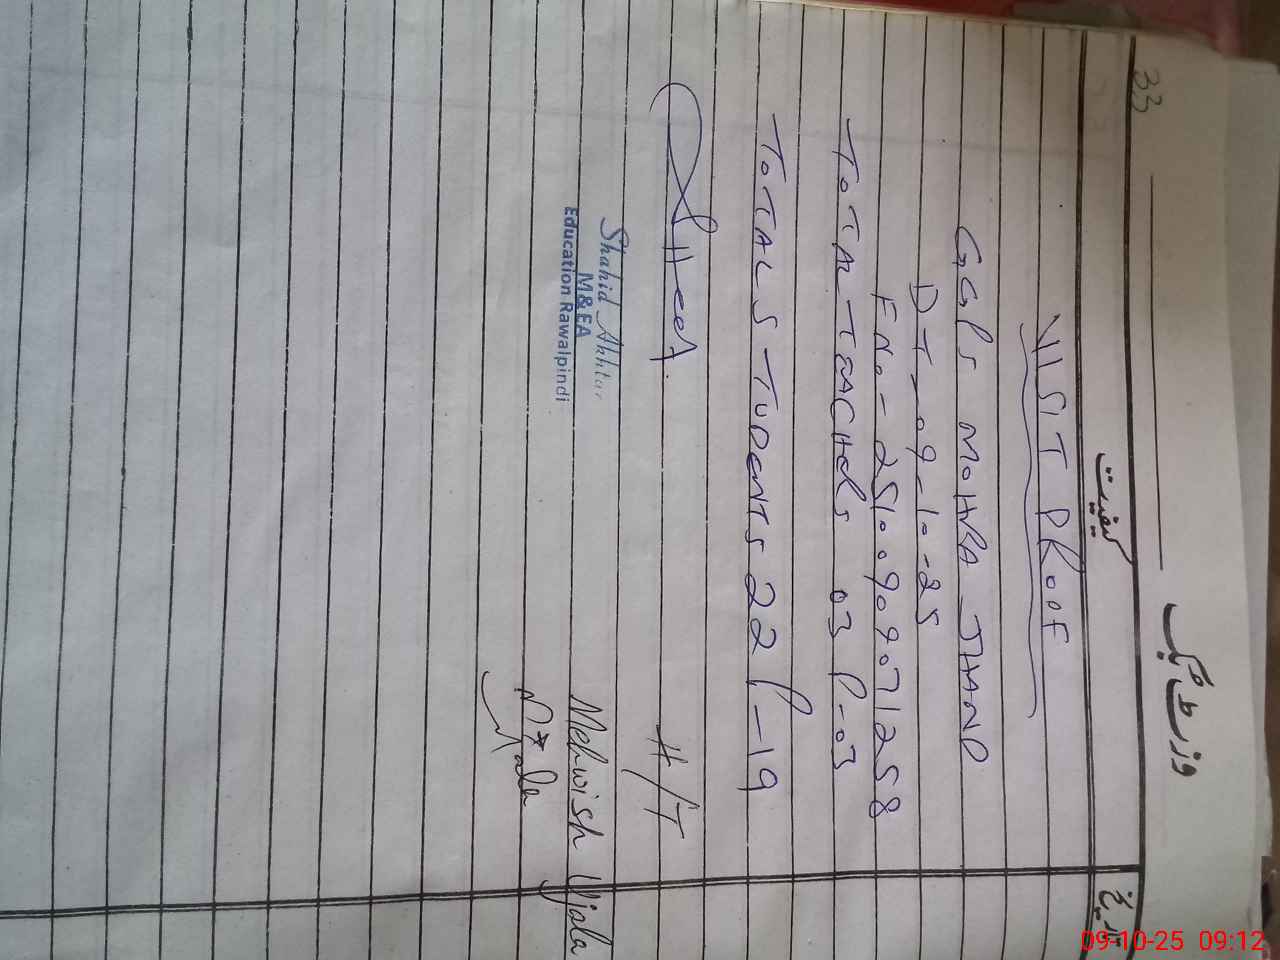 33
وزٹ بک
کیفیت
تاریخ
VISIT PROOF
GGPS MOHRA JHAND
DT-09-10-25
FNo-25100909071258
TOTAL TEACHERS 03 P-03
TOTAL STUDENTS 22 P-19
H/T
Shahid Akhtar
M&EA
Education Rawalpindi
Mehwish Ujala
09-10-25 09:12